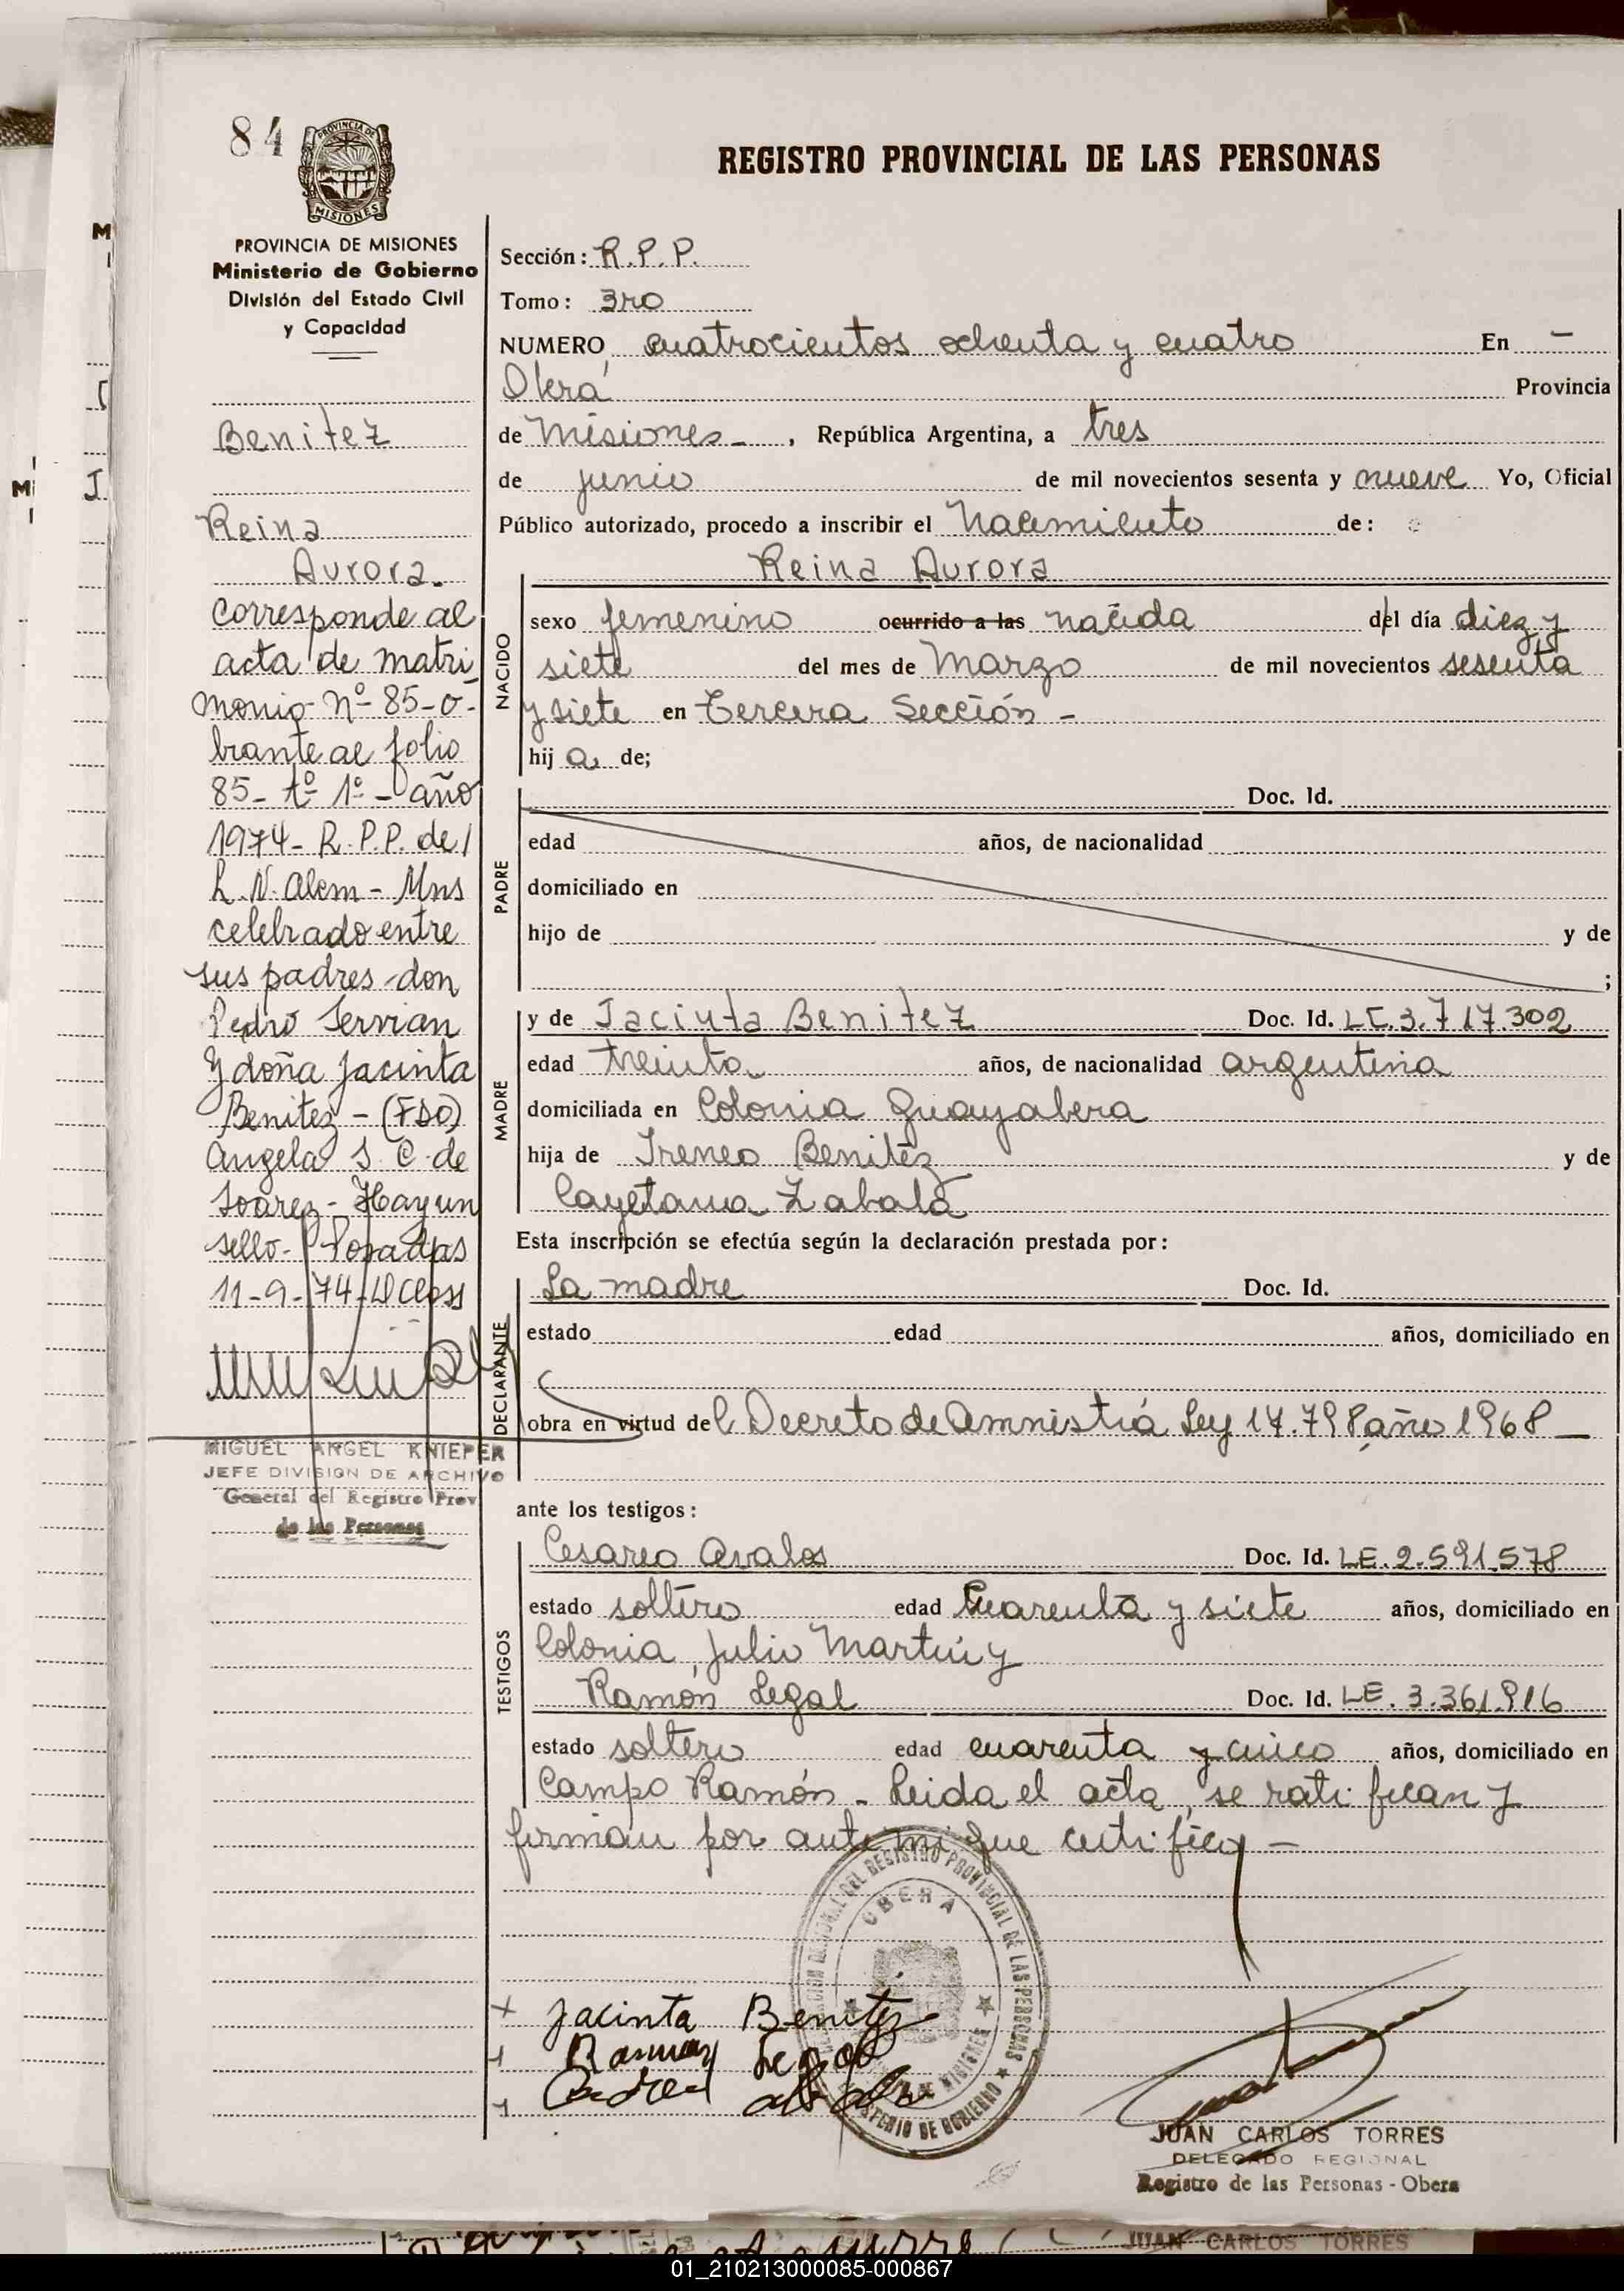 84
PROVINCIA DE
MISIONES
PROVINCIA DE MISIONES
Ministerio de Gobierno
División del Estado Civil
y Capacidad
Benitez
Reina
Aurora.
Corresponde al
acta de matri
monio nº 85-o-
brante al folio
85- tº 1º - año
1974- R.P.P. de/
L.N. Alem - Mns
celebrado entre
sus padres don
Pedro Servian
y doña Jacinta
Benitez - (FDO)
Angela S. C. de
Soarez - Hay un
sello- Posadas
11-9-74-
MIGUEL ANGEL KNIEPER
JEFE DIVISION DE ARCHIVO
General del Registro Prov
de las Personas
REGISTRO PROVINCIAL DE LAS PERSONAS
Sección: R.P.P.
Tomo: 3ro
NUMERO cuatrocientos ochenta y cuatro En -
Oberá Provincia
de Misiones - , República Argentina, a tres
de junio de mil novecientos sesenta y nueve Yo, Oficial
Público autorizado, procedo a inscribir el Nacimiento de:
Reina Aurora
NACIDO
sexo femenino ocurrido a las nacida del día diez y
siete del mes de Marzo de mil novecientos sesenta
y siete en Tercera Sección -
hij a de;
PADRE
Doc. Id.
edad años, de nacionalidad
domiciliado en
hijo de y de
;
MADRE
y de Jacinta Benitez Doc. Id. LC.3.717.302
edad treinta años, de nacionalidad argentina
domiciliada en Colonia Guayabera
hija de Ireneo Benitez y de
Cayetana Zabala
Esta inscripción se efectúa según la declaración prestada por:
DECLARANTE
La madre Doc. Id.
estado edad años, domiciliado en
obra en virtud del Decreto de Amnistia Ley 17.798 año 1968 -
ante los testigos:
TESTIGOS
Cesareo Avalos Doc. Id. LE.2.591.578
estado soltero edad Cuarenta y siete años, domiciliado en
Colonia Julio Martin y
Ramón Legal Doc. Id. LE.3.361.916
estado soltero edad cuarenta y cinco años, domiciliado en
Campo Ramón - Leida el acta, se ratifican y
firman por ante mi que certifico -
DEL REGISTRO PROVINCIAL DE LAS PERSONAS
OBERA
MISIONES
MINISTERIO DE GOBIERNO
Jacinta Benitez
Ramon Legal
JUAN CARLOS TORRES
DELEGADO REGIONAL
Registro de las Personas - Obera
JUAN CARLOS TORRES
01_210213000085-000867